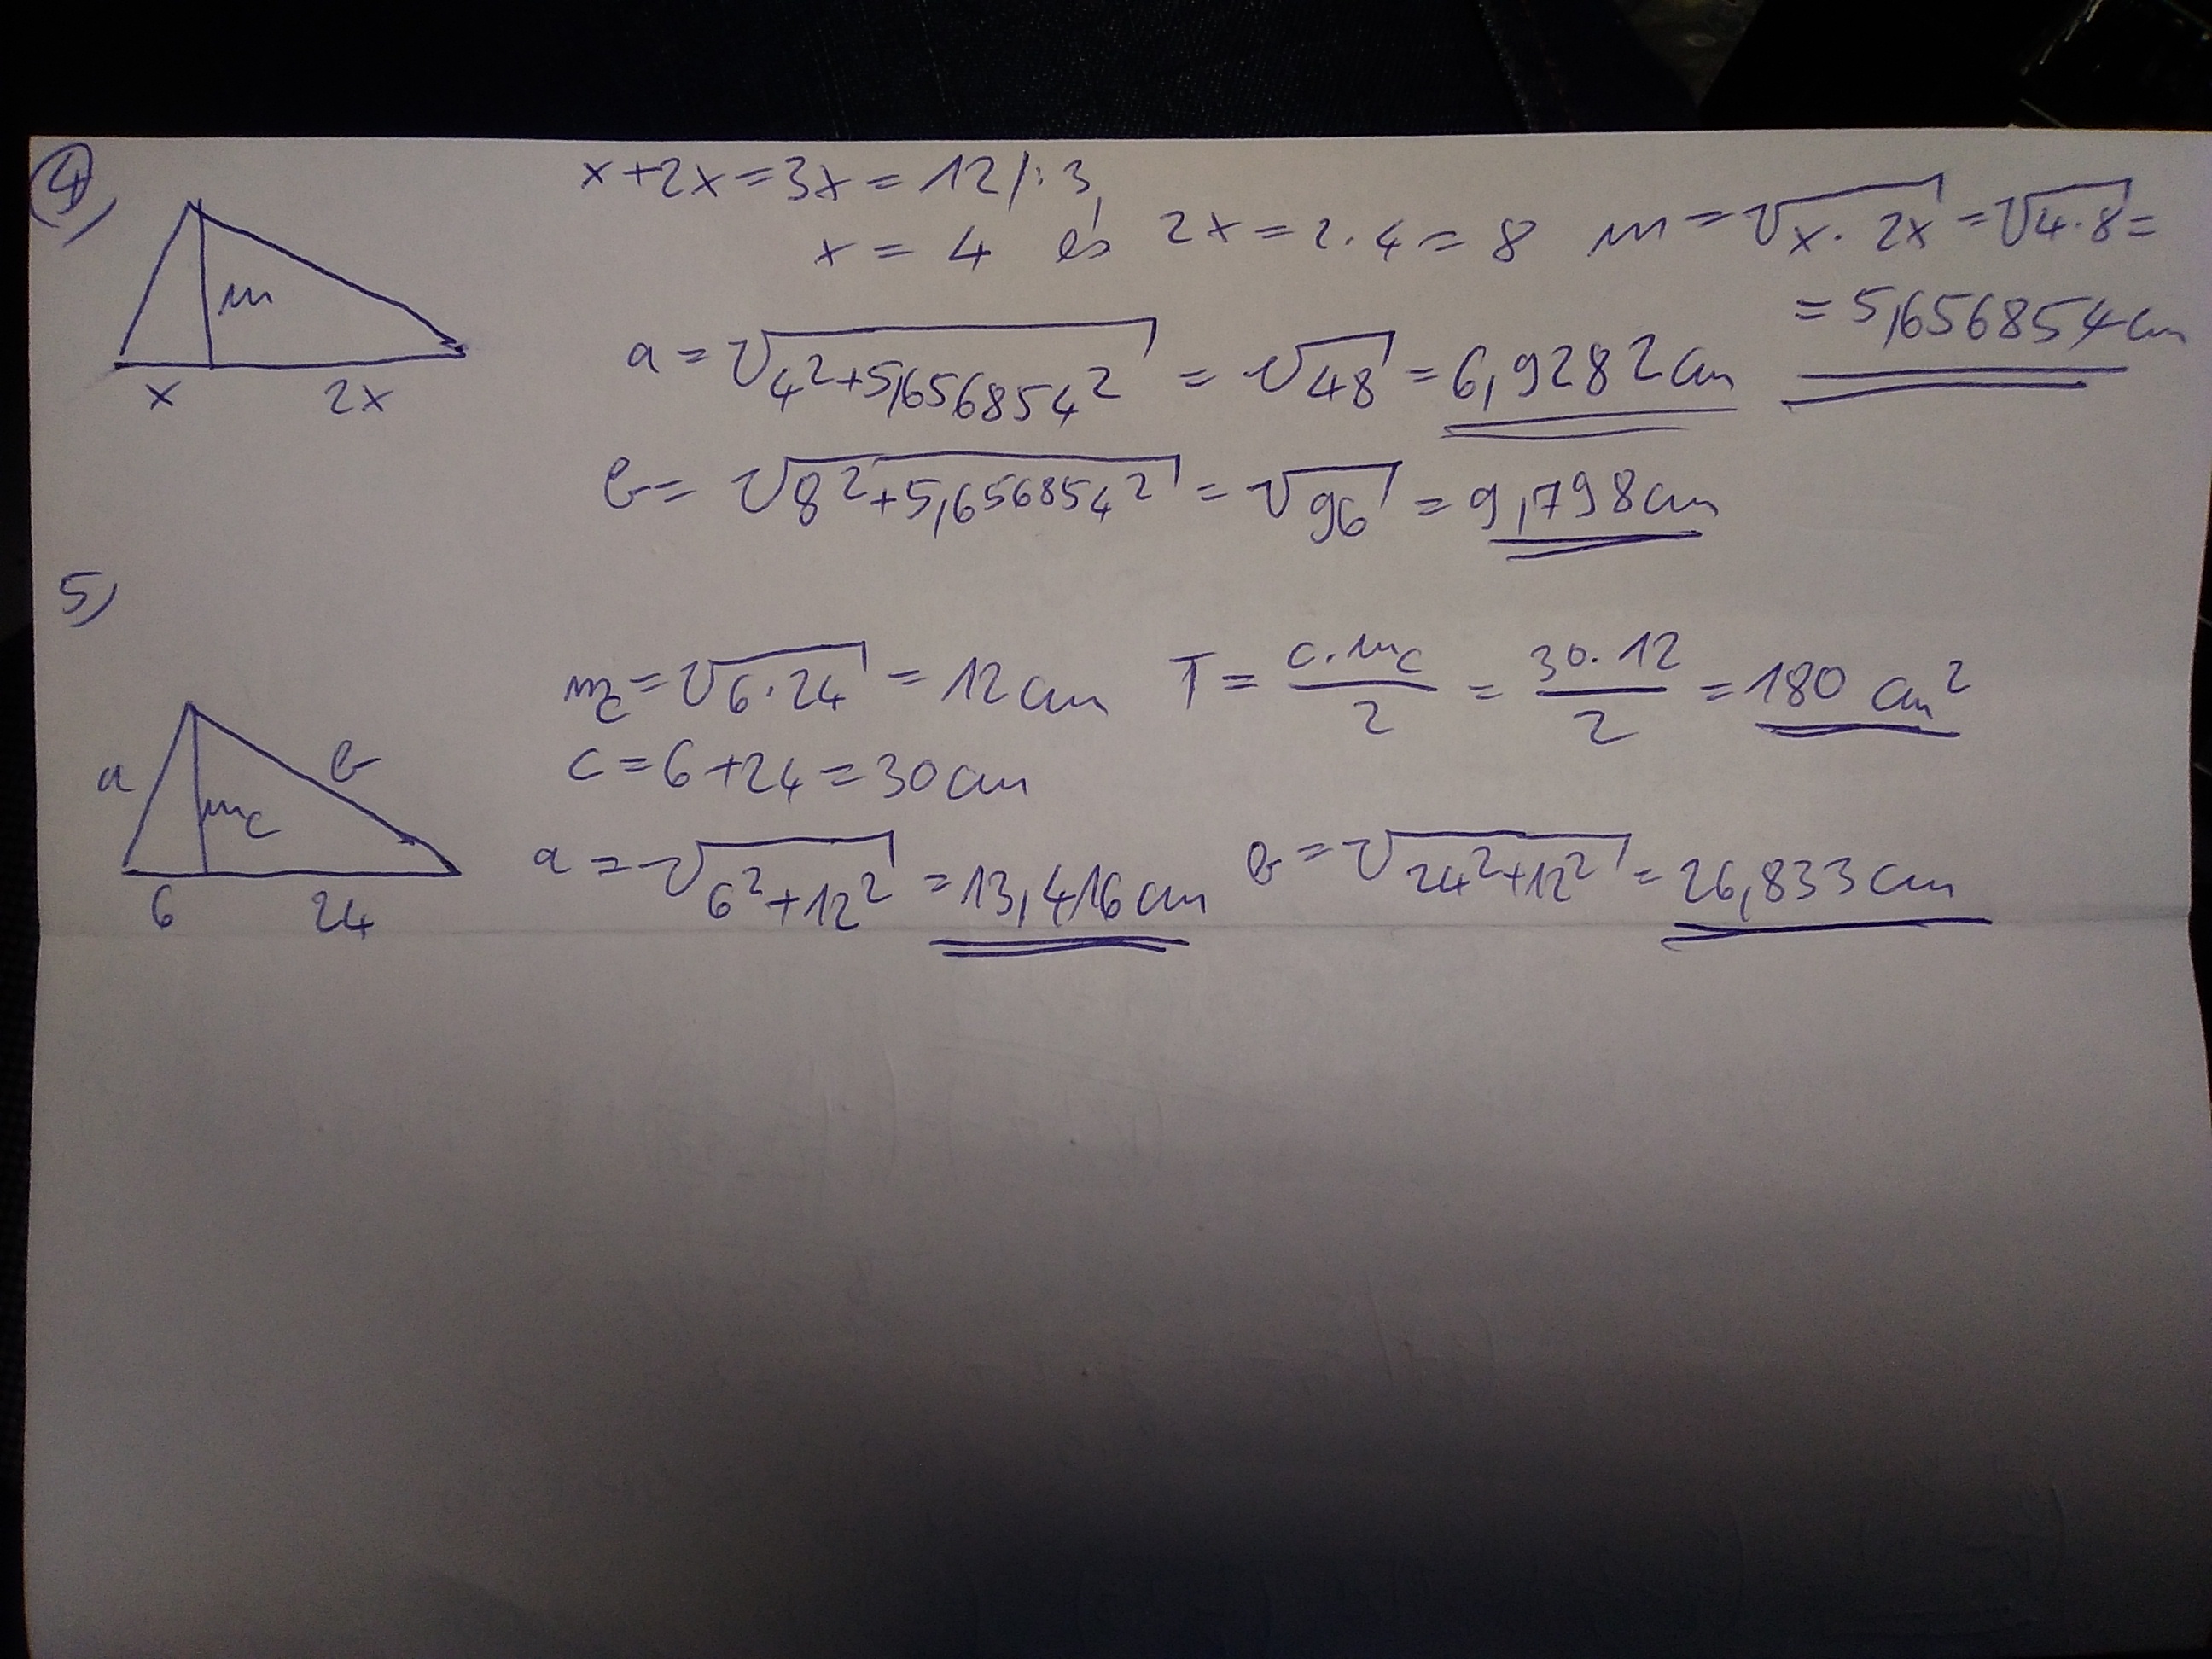 4)
x+2x=3x=12/:3
x = 4 és 2x = 2·4 = 8 m = √x·2x = √4·8 =
= 5,656854 cm
m
x 2x
a = √4²+5,656854² = √48 = 6,9282 cm
b = √8²+5,656854² = √96 = 9,798 cm
5)
m_c = √6·24 = 12 cm T = c·m_c/2 = 30·12/2 = 180 cm²
c = 6+24 = 30 cm
a b
m_c
6 24
a = √6²+12² = 13,416 cm b = √24²+12² = 26,833 cm